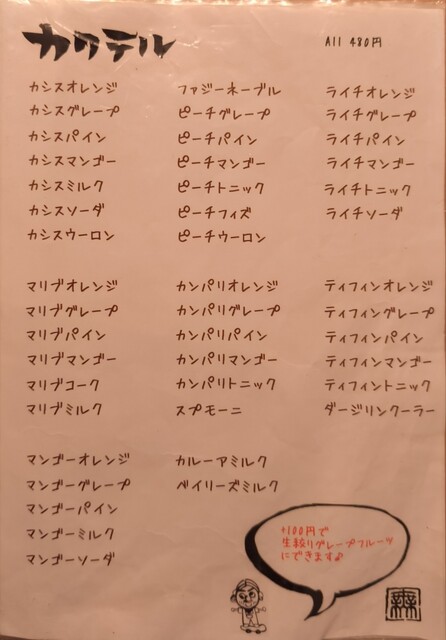 カクテル
All 480円
カシスオレンジ
カシスグレープ
カシスパイン
カシスマンゴー
カシスミルク
カシスソーダ
カシスウーロン
ファジーネーブル
ピーチグレープ
ピーチパイン
ピーチマンゴー
ピーチトニック
ピーチフィズ
ピーチウーロン
ライチオレンジ
ライチグレープ
ライチパイン
ライチマンゴー
ライチトニック
ライチソーダ
マリブオレンジ
マリブグレープ
マリブパイン
マリブマンゴー
マリブコーク
マリブミルク
カンパリオレンジ
カンパリグレープ
カンパリパイン
カンパリマンゴー
カンパリトニック
スプモーニ
ティフィンオレンジ
ティフィングレープ
ティフィンパイン
ティフィンマンゴー
ティフィントニック
ダージリンクーラー
マンゴーオレンジ
マンゴーグレープ
マンゴーパイン
マンゴーミルク
マンゴーソーダ
カルーアミルク
ベイリーズミルク
+100円で
生絞りグレープフルーツ
にできます♪